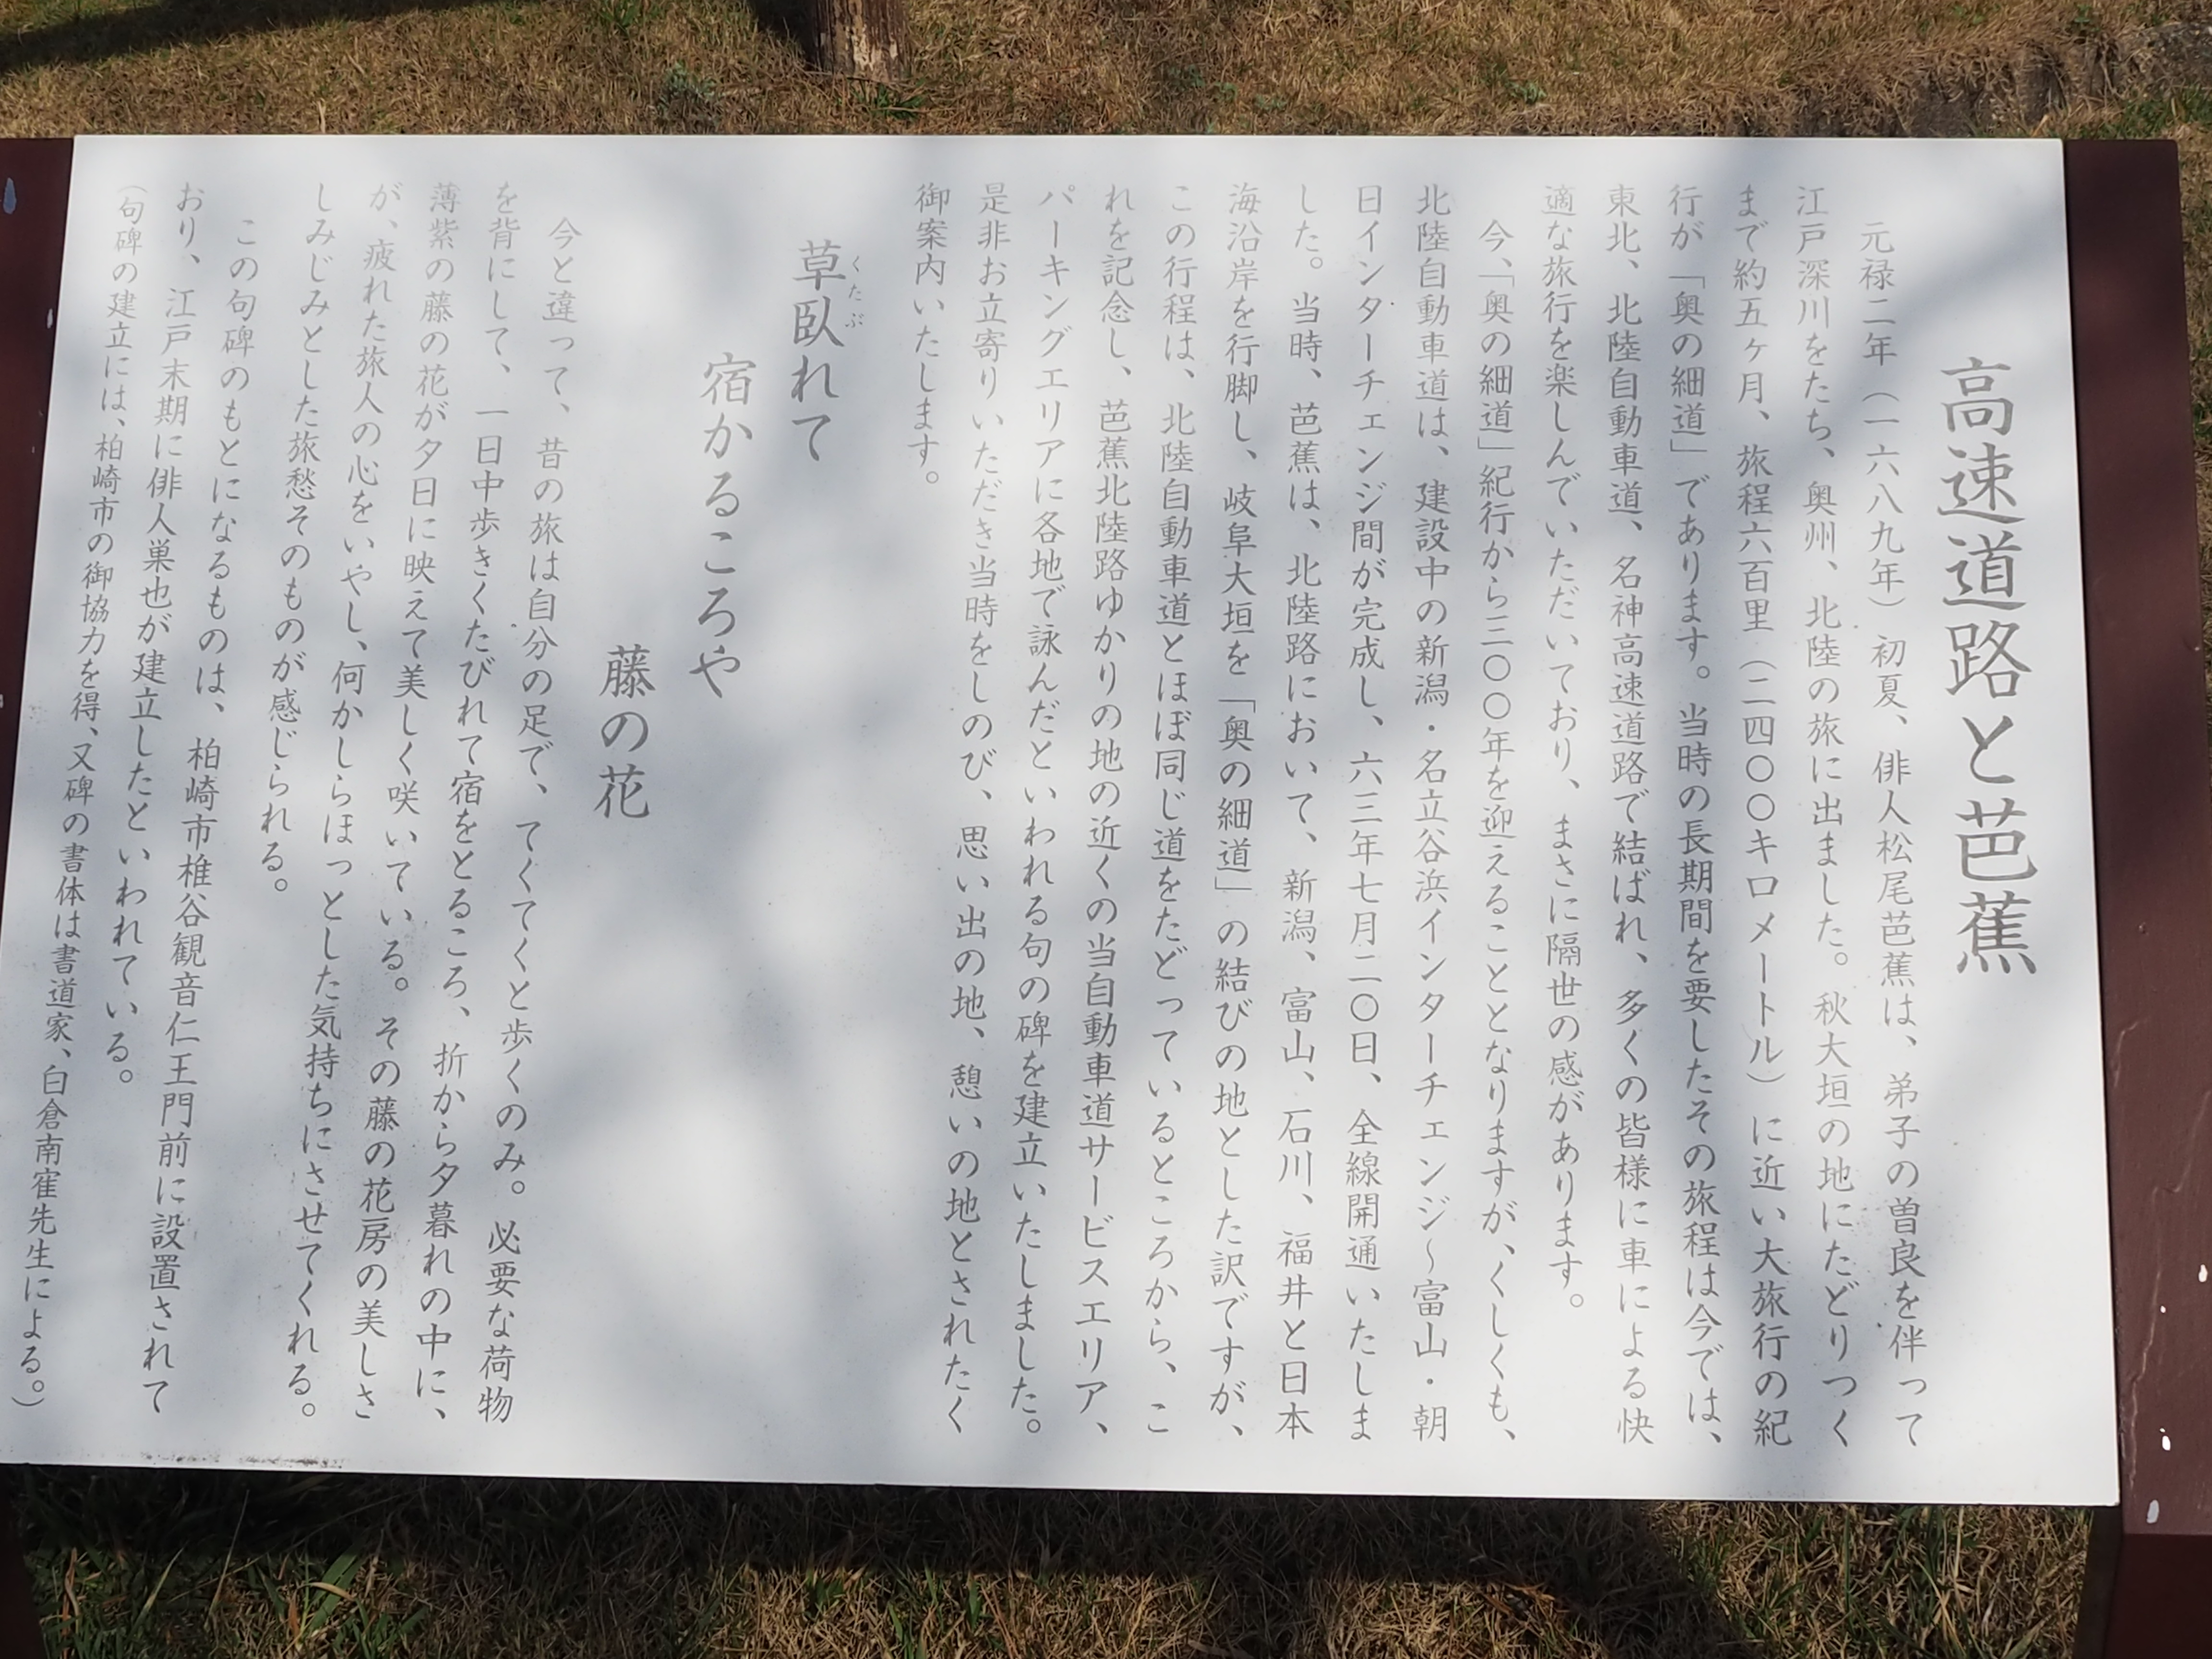 高速道路と芭蕉
元禄二年（一六八九年）初夏、俳人松尾芭蕉は、弟子の曽良を伴って
江戸深川をたち、奥州、北陸の旅に出ました。秋大垣の地にたどりつく
まで約五ヶ月、旅程六百里（二四〇〇キロメートル）に近い大旅行の紀
行が「奥の細道」であります。当時の長期間を要したその旅程は今では、
東北、北陸自動車道、名神高速道路で結ばれ、多くの皆様に車による快
適な旅行を楽しんでいただいており、まさに隔世の感があります。
今、「奥の細道」紀行から三〇〇年を迎えることとなりますが、くしくも、
北陸自動車道は、建設中の新潟・名立谷浜インターチェンジ～富山・朝
日インターチェンジ間が完成し、六三年七月二〇日、全線開通いたしま
した。当時、芭蕉は、北陸路において、新潟、富山、石川、福井と日本
海沿岸を行脚し、岐阜大垣を「奥の細道」の結びの地とした訳ですが、
この行程は、北陸自動車道とほぼ同じ道をたどっているところから、こ
れを記念し、芭蕉北陸路ゆかりの地の近くの当自動車道サービスエリア、
パーキングエリアに各地で詠んだといわれる句の碑を建立いたしました。
是非お立寄りいただき当時をしのび、思い出の地、憩いの地とされたく
御案内いたします。
草臥れて
くたぶ
宿かるころや
藤の花
今と違って、昔の旅は自分の足で、てくてくと歩くのみ。必要な荷物
を背にして、一日中歩きくたびれて宿をとるころ、折から夕暮れの中に、
薄紫の藤の花が夕日に映えて美しく咲いている。その藤の花房の美しさ
が、疲れた旅人の心をいやし、何かしらほっとした気持ちにさせてくれる。
しみじみとした旅愁そのものが感じられる。
この句碑のもとになるものは、柏崎市椎谷観音仁王門前に設置されて
おり、江戸末期に俳人巣也が建立したといわれている。
（句碑の建立には、柏崎市の御協力を得、又碑の書体は書道家、白倉南寉先生による。）